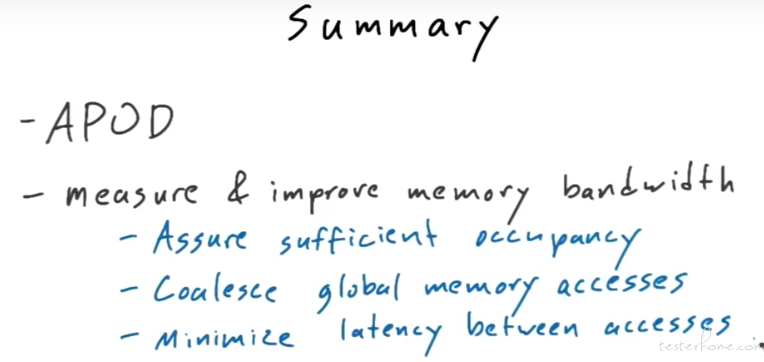 Summary
- APOD
- measure & improve memory bandwidth
- Assure sufficient occupancy
- Coalesce global memory accesses
- Minimize latency between accesses
testerhome.com